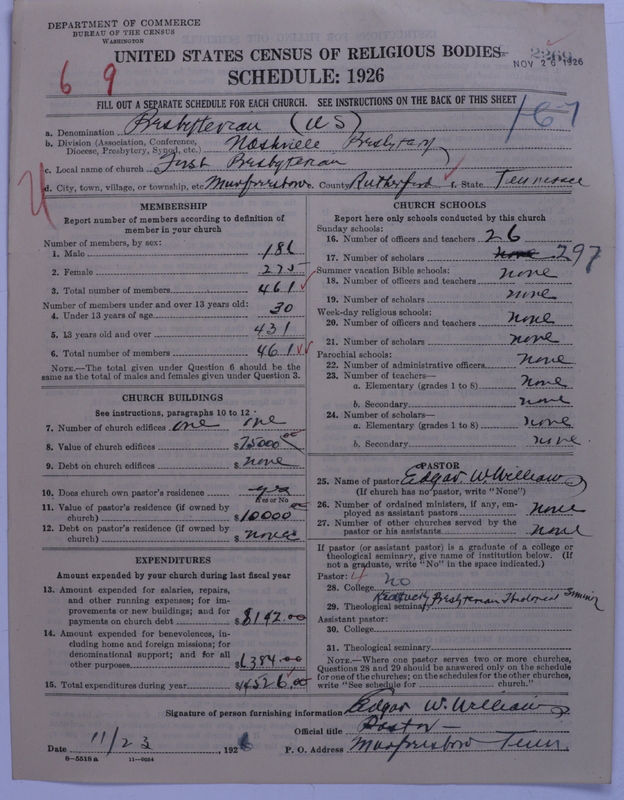 DEPARTMENT OF COMMERCE
BUREAU OF THE CENSUS
WASHINGTON
UNITED STATES CENSUS OF RELIGIOUS BODIES
NOV 26 1926
SCHEDULE: 1926
6 9
FILL OUT A SEPARATE SCHEDULE FOR EACH CHURCH. SEE INSTRUCTIONS ON THE BACK OF THIS SHEET
167
a. Denomination Presbyterian (US)
b. Division (Association, Conference, Diocese, Presbytery, Synod, etc.) Nashville Presbytery
c. Local name of church First Presbyterian
d. City, town, village, or township, etc. Murfreesboro e. County Rutherford f. State Tennessee
MEMBERSHIP
Report number of members according to definition of
member in your church
Number of members, by sex:
1. Male 186
2. Female 275
3. Total number of members 461
Number of members under and over 13 years old:
4. Under 13 years of age 30
5. 13 years old and over 431
6. Total number of members 461
NOTE.—The total given under Question 6 should be
same as the total of males and females given under Question 3.
CHURCH BUILDINGS
See instructions, paragraphs 10 to 12
7. Number of church edifices one one
8. Value of church edifices $75000 00
9. Debt on church edifices $ none
10. Does church own pastor's residence yes
Yes or No
11. Value of pastor's residence (if owned by
church) $10000 00
12. Debt on pastor's residence (if owned by
church) $ none
EXPENDITURES
Amount expended by your church during last fiscal year
13. Amount expended for salaries, repairs,
and other running expenses; for im-
provements or new buildings; and for
payments on church debt $8142.00
14. Amount expended for benevolences, in-
cluding home and foreign missions; for
denominational support; and for all
other purposes $6384.00
15. Total expenditures during year $14526.00
CHURCH SCHOOLS
Report here only schools conducted by this church
Sunday schools:
16. Number of officers and teachers 26
17. Number of scholars none 297
Summer vacation Bible schools:
18. Number of officers and teachers none
19. Number of scholars none
Week-day religious schools:
20. Number of officers and teachers none
21. Number of scholars none
Parochial schools:
22. Number of administrative officers none
23. Number of teachers—
a. Elementary (grades 1 to 8) none
b. Secondary none
24. Number of scholars—
a. Elementary (grades 1 to 8) none
b. Secondary none
PASTOR
25. Name of pastor Edgar W. Williams
(If church has no pastor, write "None")
26. Number of ordained ministers, if any, em-
ployed as assistant pastors none
27. Number of other churches served by the
pastor or his assistants none
If pastor (or assistant pastor) is a graduate of a college or
theological seminary, give name of institution below. (If
not a graduate, write "No" in the space indicated.)
Pastor:
28. College no
29. Theological seminary Kentucky Presbyterian Theological Seminary
Assistant pastor:
30. College
31. Theological seminary
NOTE.—Where one pastor serves two or more churches,
Questions 28 and 29 should be answered only on the schedule
for one of the churches; on the schedules for the other churches,
write "See schedule for church."
Signature of person furnishing information Edgar W. Williams
Official title Pastor
Date 11/23, 1926 P. O. Address Murfreesboro Tenn
8—5518 a 11—9054